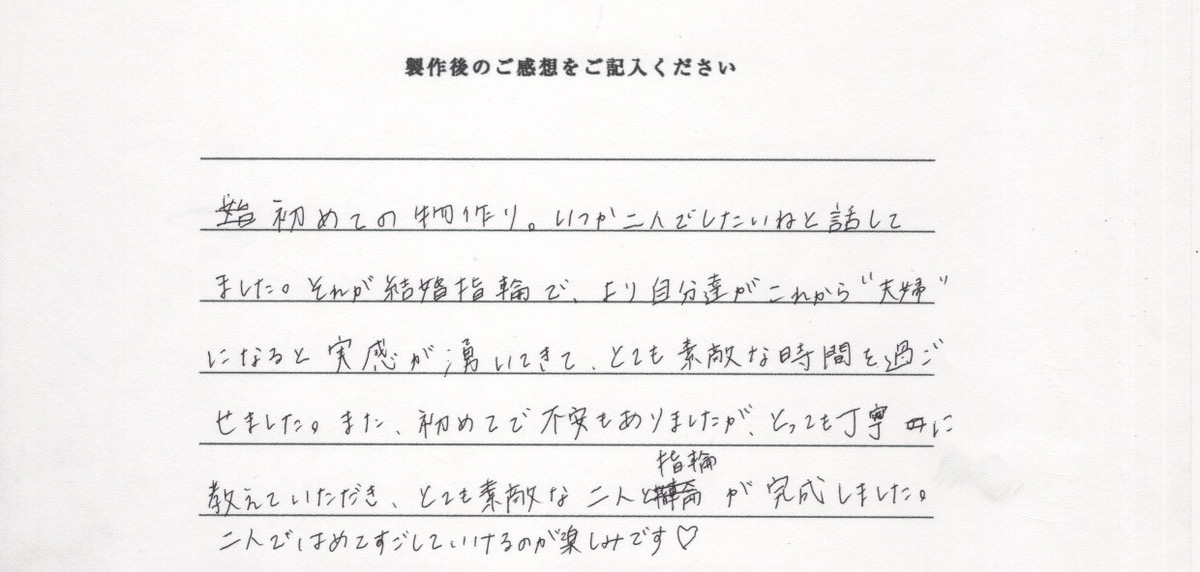 製作後のご感想をご記入ください
初めての物作り。いつか二人でしたいねと話して
ました。それが結婚指輪で、より自分達がこれから“夫婦”
になると実感が湧いてきて、とても素敵な時間を過ご
せました。また、初めてで不安もありましたが、とっても丁寧に
指輪
教えていただき、とても素敵な二人と が完成しました。
二人ではめてすごしていけるのが楽しみです♡